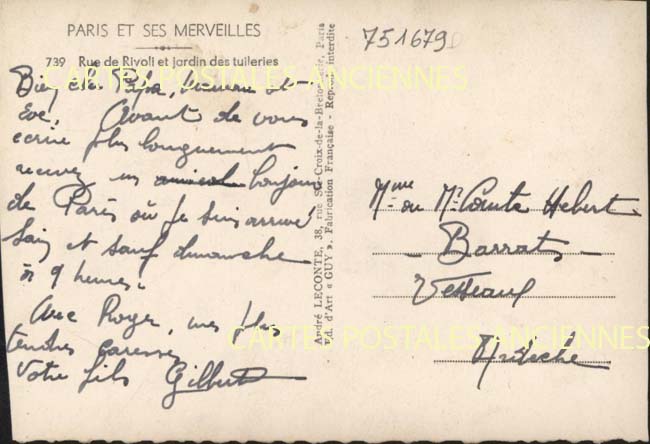 PARIS ET SES MERVEILLES
739 Rue de Rivoli et jardin des tuileries
751679
CARTES POSTALES ANCIENNES
Bien chers Papa, maman et
Eve, Avant de vous
écrire plus longuement
recevez un amical bonjour
de Paris où je suis arrivé
sain et sauf dimanche
à 9 heures.
Avec Roger, mes plus
tendres caresses
Votre fils Gilbert
André LECONTE, 38, rue Ste-Croix-de-la-Bretonnerie, Paris
Éd. d'Art « GUY ». Fabrication Française - Reprod. interdite
Mme ou Mr Comte Hebert
Barrat
Vesseaux
Ardèche
CARTES POSTALES ANCIENNES